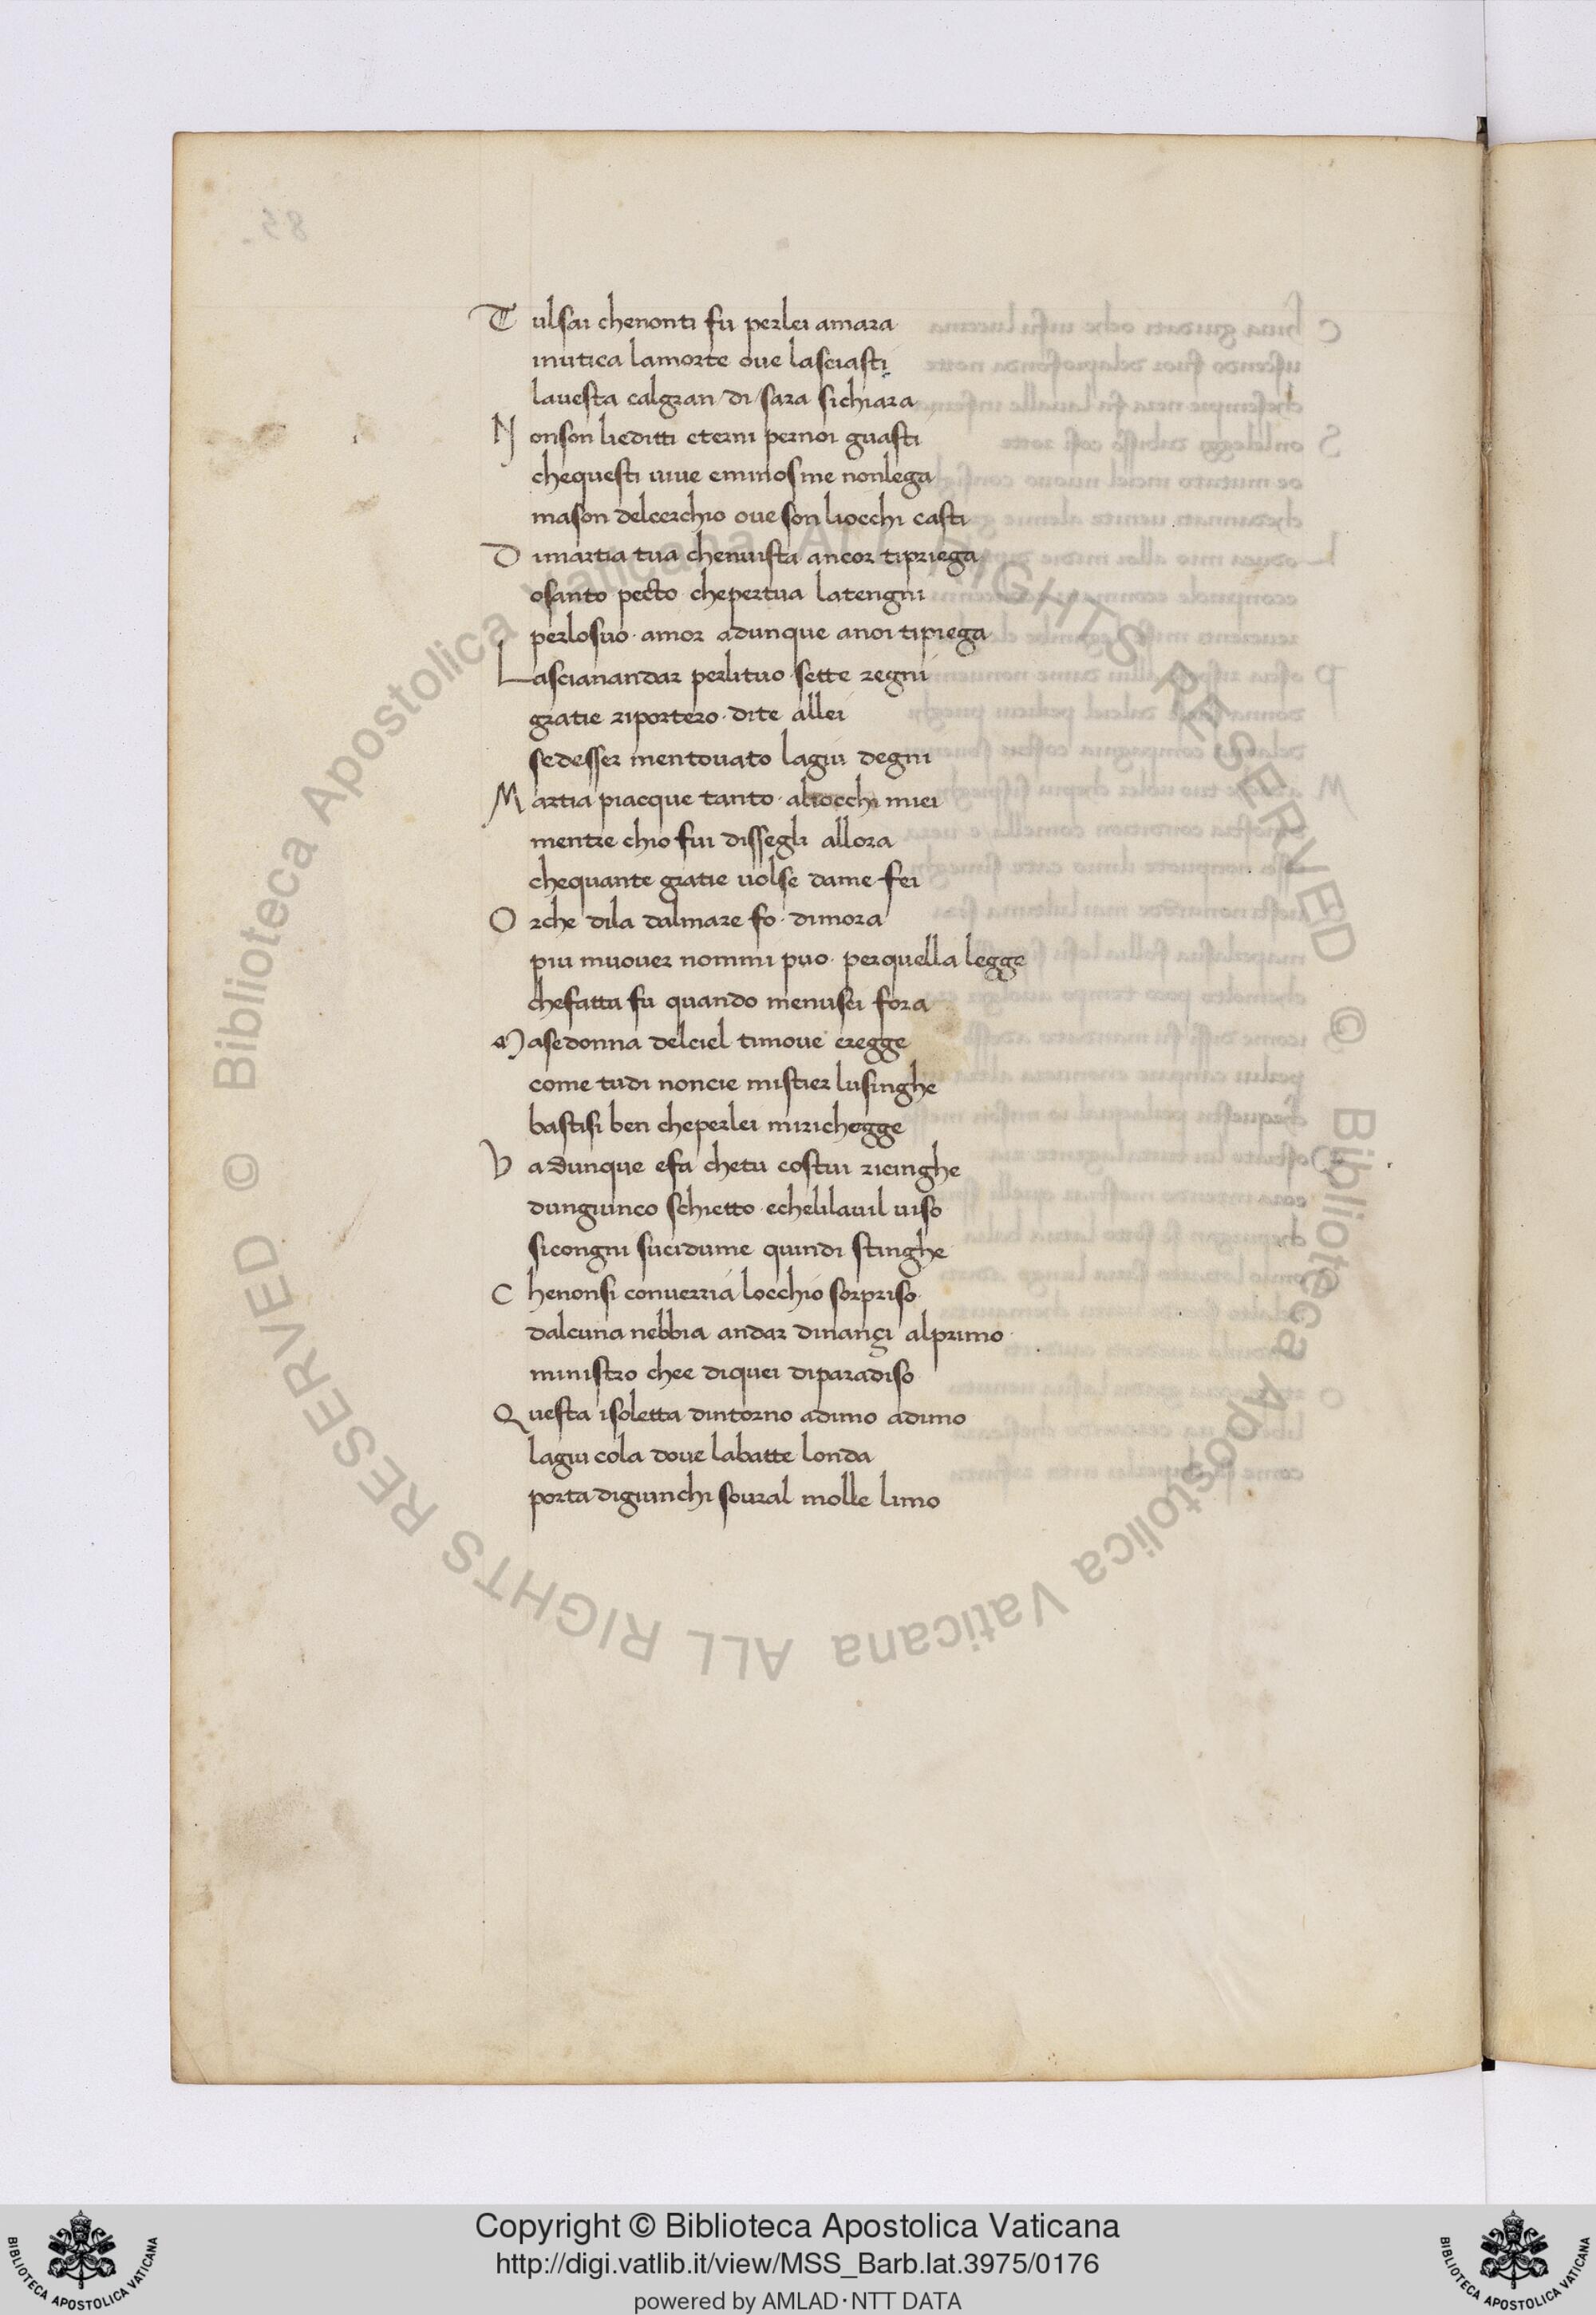 T ulsai chenonti fu perlei amara
inutica lamorte oue lasciasti
lauesta calgran di sara sichiara
N onson lieditti eterni pernoi guasti
chequesti uiue eminos me nonlega
mason delcerchio oue son liocchi casti
D imartia tua chenuista ancor tipriega
osanto pecto chepertua latengni
perlosuo amor adunque anoi tipiega
L ascianandar perlituo sette regni
gratie riportero dite allei
sedesser mentouato lagiu degni
M artia piacque tanto aliocchi miei
mentre chio fui dissegli allora
chequante gratie uolse dame fei
O rche dila dalmare fo dimora
piu muouer nommi puo perquella legge
chefatta fu quando menusci fora
M asedonna delciel timoue eregge
come tudi noncie mistier lusinghe
bastisi ben cheperlei mirichegge
V adunque efa chetu costui ricinghe
dungiunco schietto echelilauil uiso
sicongni sucidume quindi stinghe
C henonsi conuerria locchio sorpriso
dalcuna nebbia andar dinançi alprimo
ministro chee diquei diparadiso
Q uesta isoletta dintorno adimo adimo
lagiu cola doue labatte londa
porta digiunchi soural molle limo
© Biblioteca Apostolica Vaticana ALL RIGHTS RESERVED © Biblioteca Apostolica Vaticana ALL RIGHTS RESERVED
Copyright © Biblioteca Apostolica Vaticana
http://digi.vatlib.it/view/MSS_Barb.lat.3975/0176
powered by AMLAD·NTT DATA
BIBLIOTECA APOSTOLICA VATICANA
BIBLIOTECA APOSTOLICA VATICANA